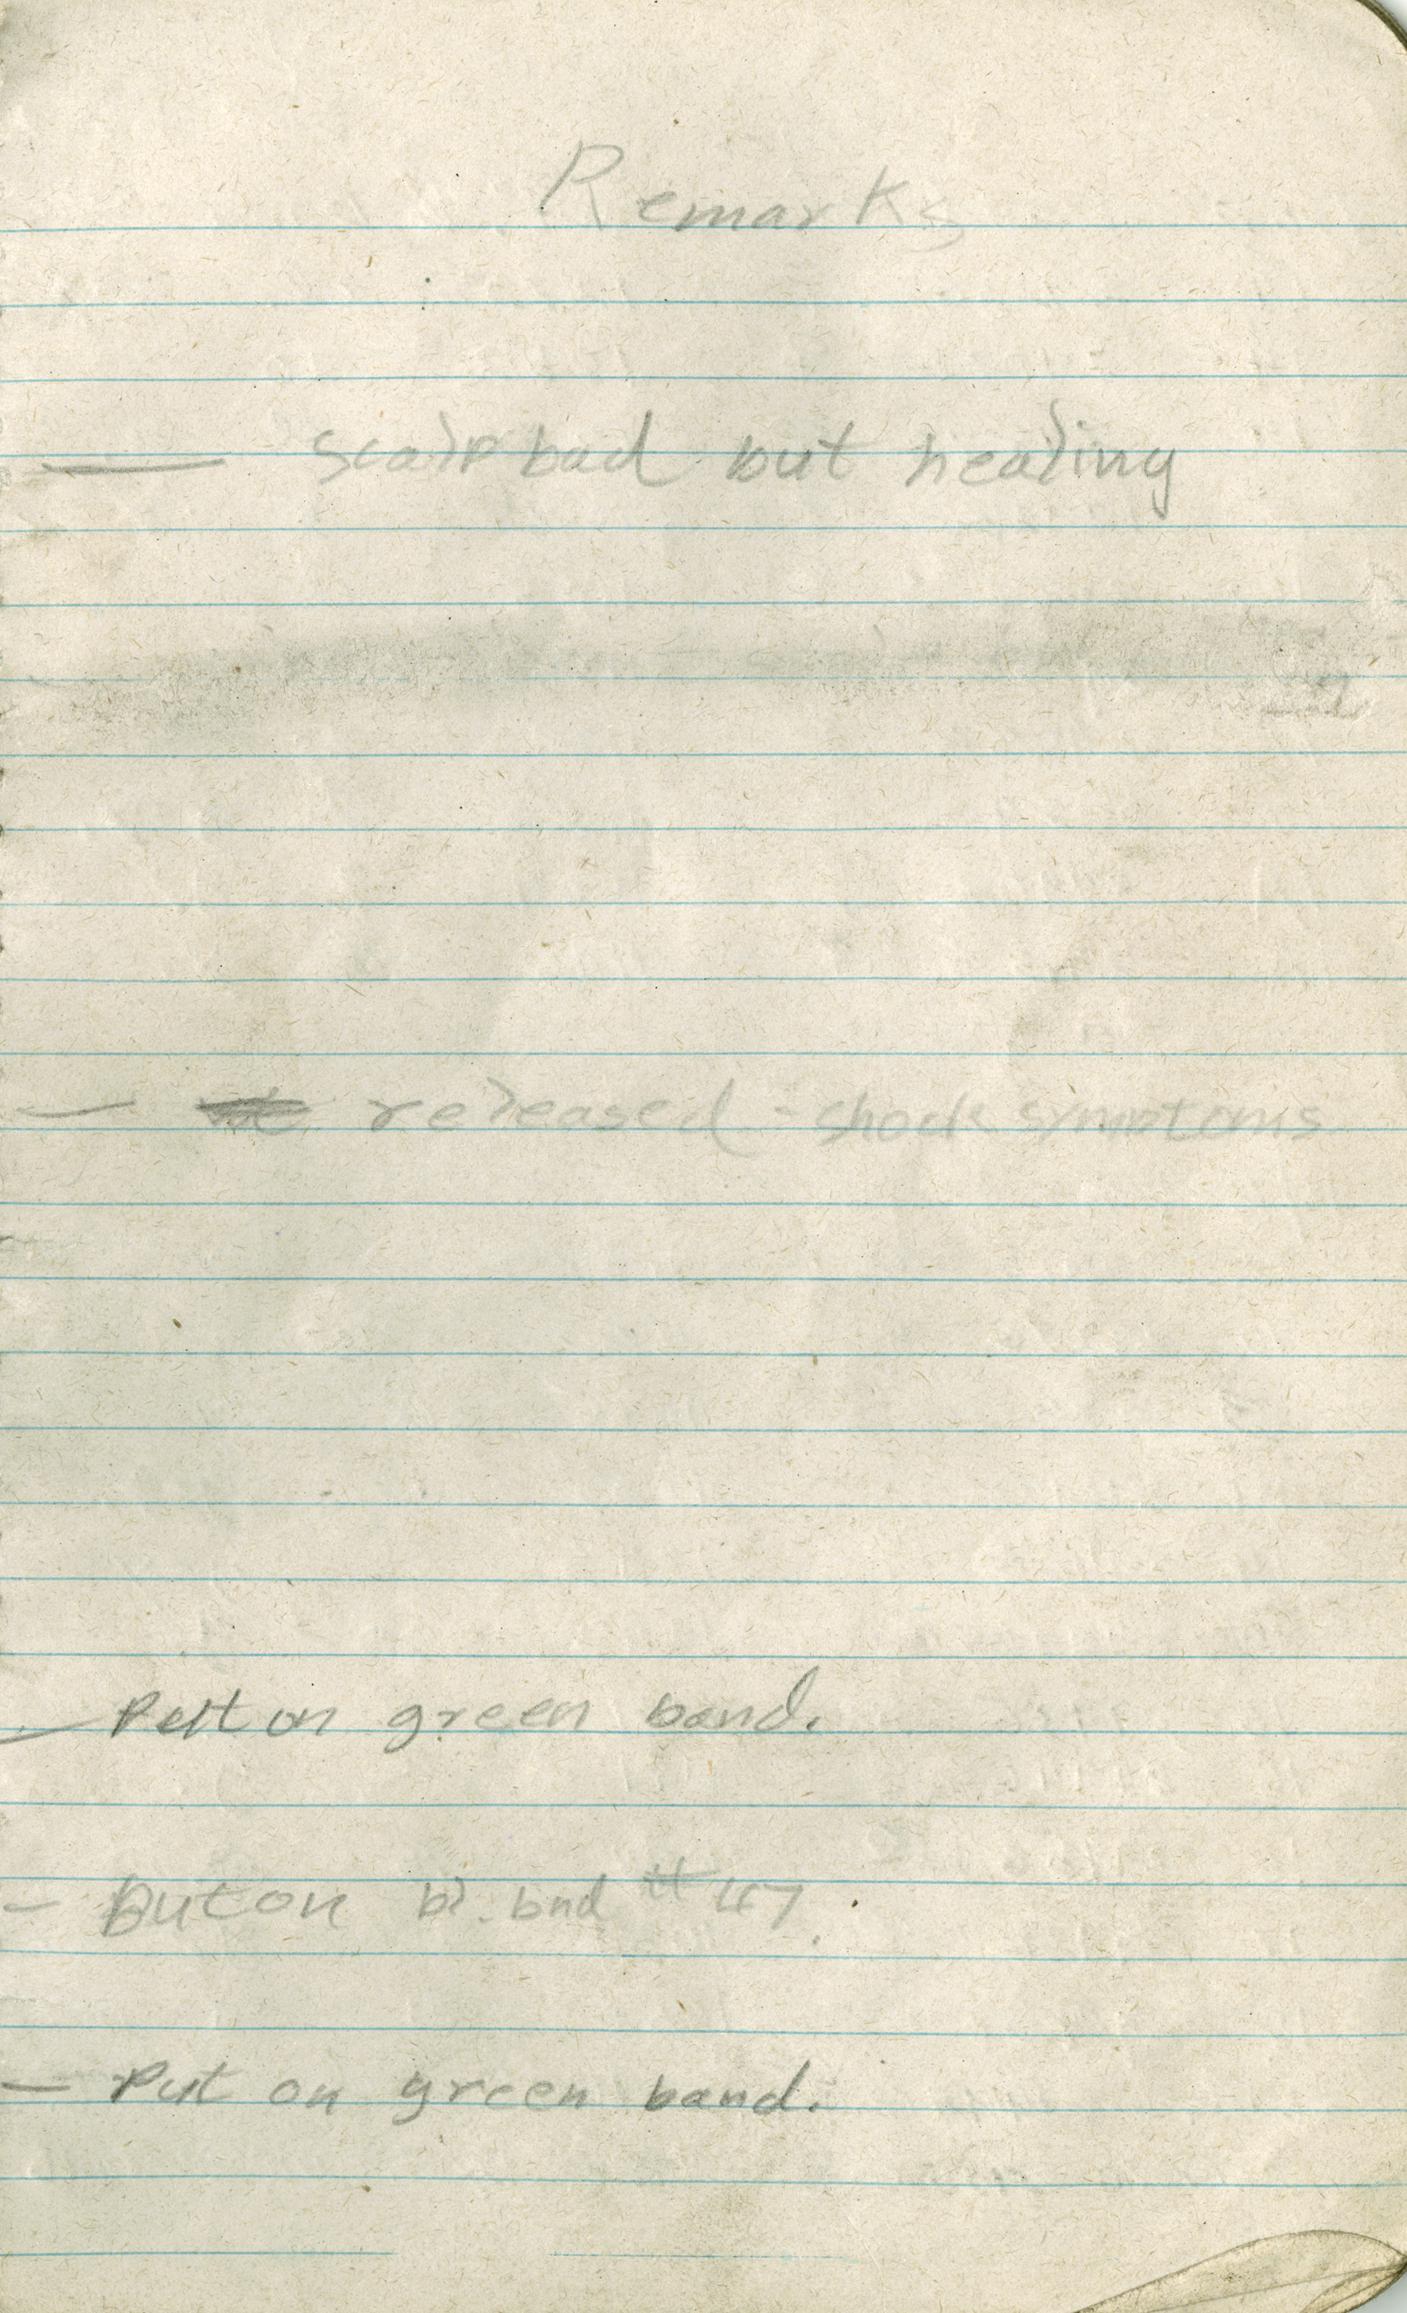 Remarks
— scalp bad but healing
— released - shock symptoms
— Put on green band.
— Put on bl. bnd # 47.
— Put on green band.